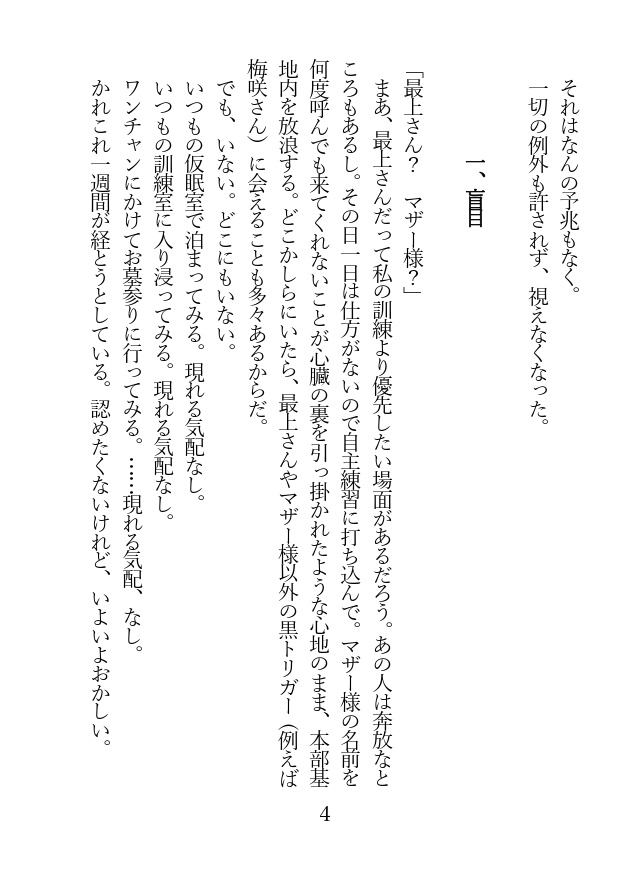 それはなんの予兆もなく。
一切の例外も許されず、視えなくなった。
一、盲目
「最上さん？　マザー様？」
まあ、最上さんだって私の訓練より優先したい場面があるだろう。あの人は奔放なと
ころもあるし。その日一日は仕方がないので自主練習に打ち込んで。マザー様の名前を
何度呼んでも来てくれないことが心臓の裏を引っ掛かれたような心地のまま、本部基
地内を放浪する。どこかしらにいたら、最上さんやマザー様以外の黒トリガー（例えば
梅咲さん）に会えることも多々あるからだ。
でも、いない。どこにもいない。
いつもの仮眠室で泊まってみる。現れる気配なし。
いつもの訓練室に入り浸ってみる。現れる気配なし。
ワンチャンにかけてお墓参りに行ってみる。……現れる気配、なし。
かれこれ一週間が経とうとしている。認めたくないけれど、いよいよおかしい。
4